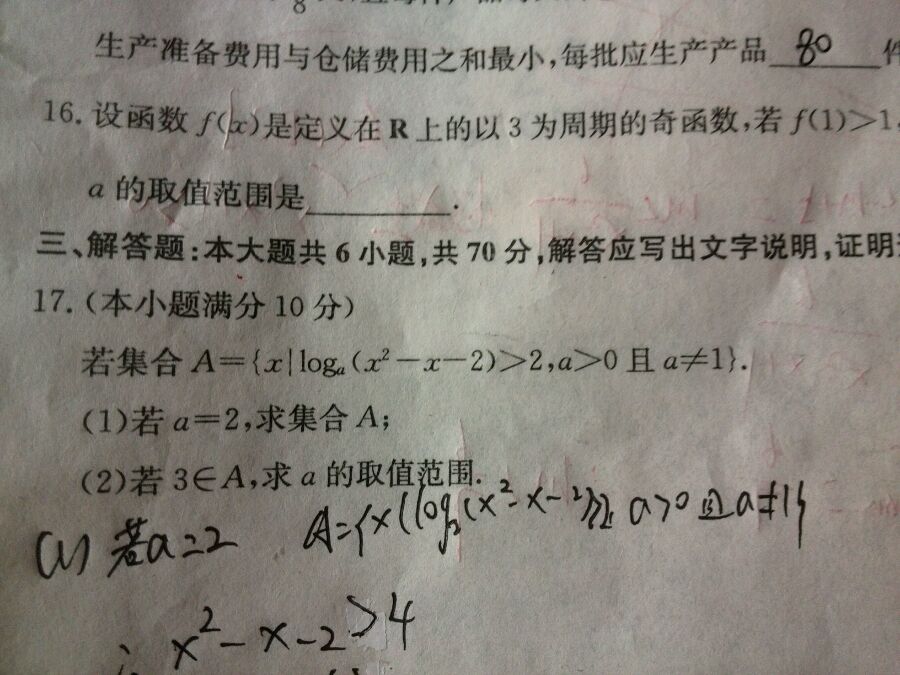 生产准备费用与仓储费用之和最小,每批应生产产品 80 件
16. 设函数 f(x)是定义在 R 上的以 3 为周期的奇函数,若 f(1)>1,
a 的取值范围是________.
三、解答题:本大题共 6 小题,共 70 分,解答应写出文字说明,证明
17. (本小题满分 10 分)
若集合 A={x|logₐ(x²-x-2)>2,a>0 且 a≠1}.
(1)若 a=2,求集合 A;
(2)若 3∈A,求 a 的取值范围.
(1) 若a=2 A={x|log₂(x²-x-2)>2, a>0 且 a≠1}
∴ x²-x-2>4